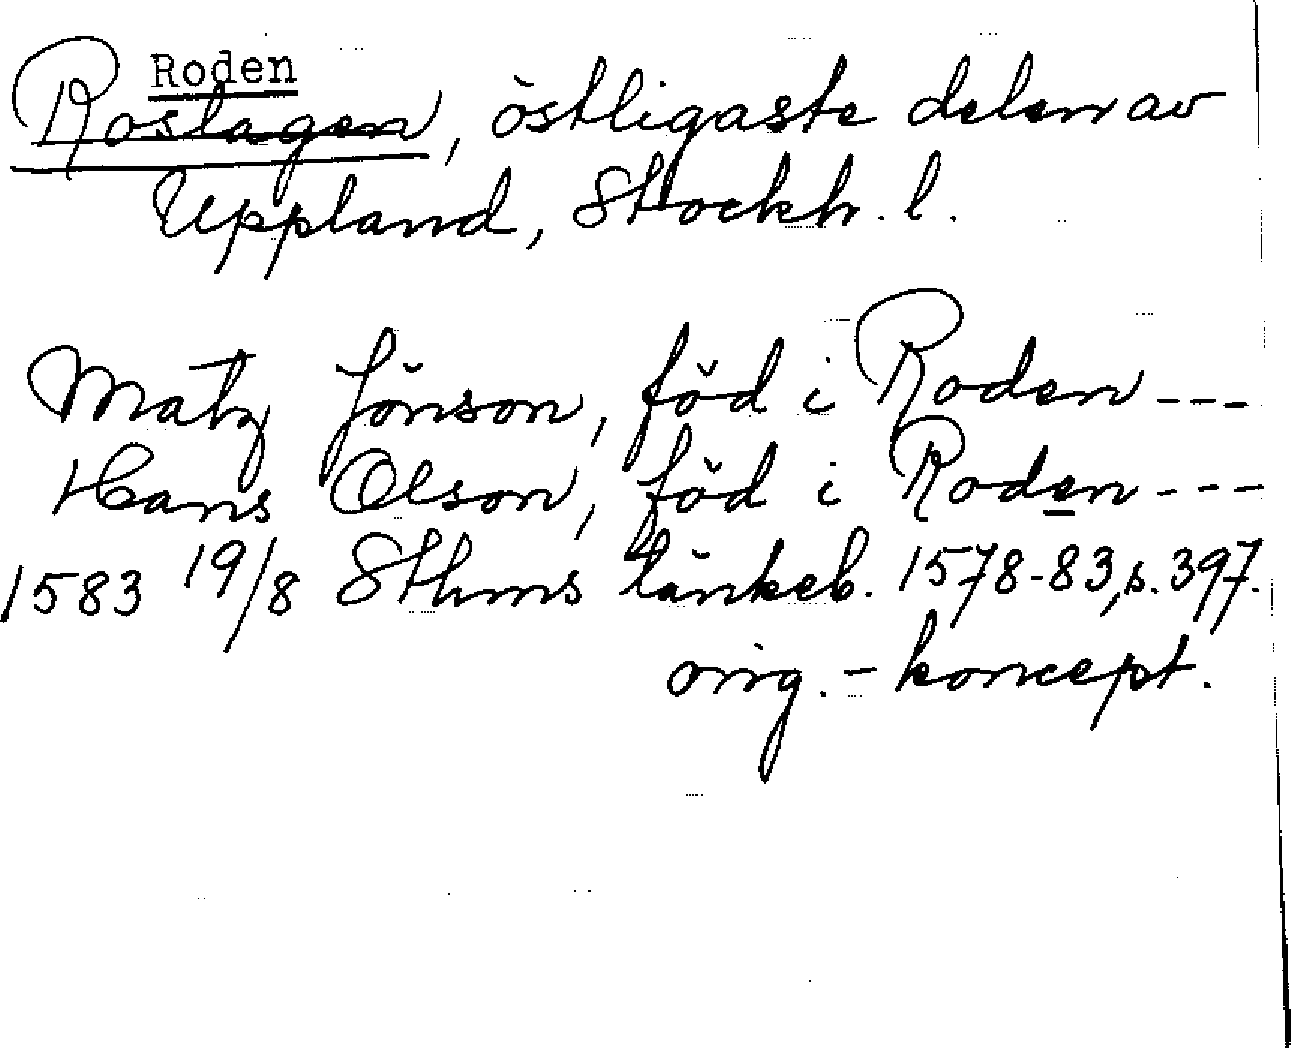 Roden
Roslagen, östligaste delen av
Uppland, Stockh. l.
Matz Jönson, föd i Roden ---
Hans Olson, föd i Roden ---
1583 19/8 Sthms tänkeb. 1578-83, s. 397.
orig. - koncept.